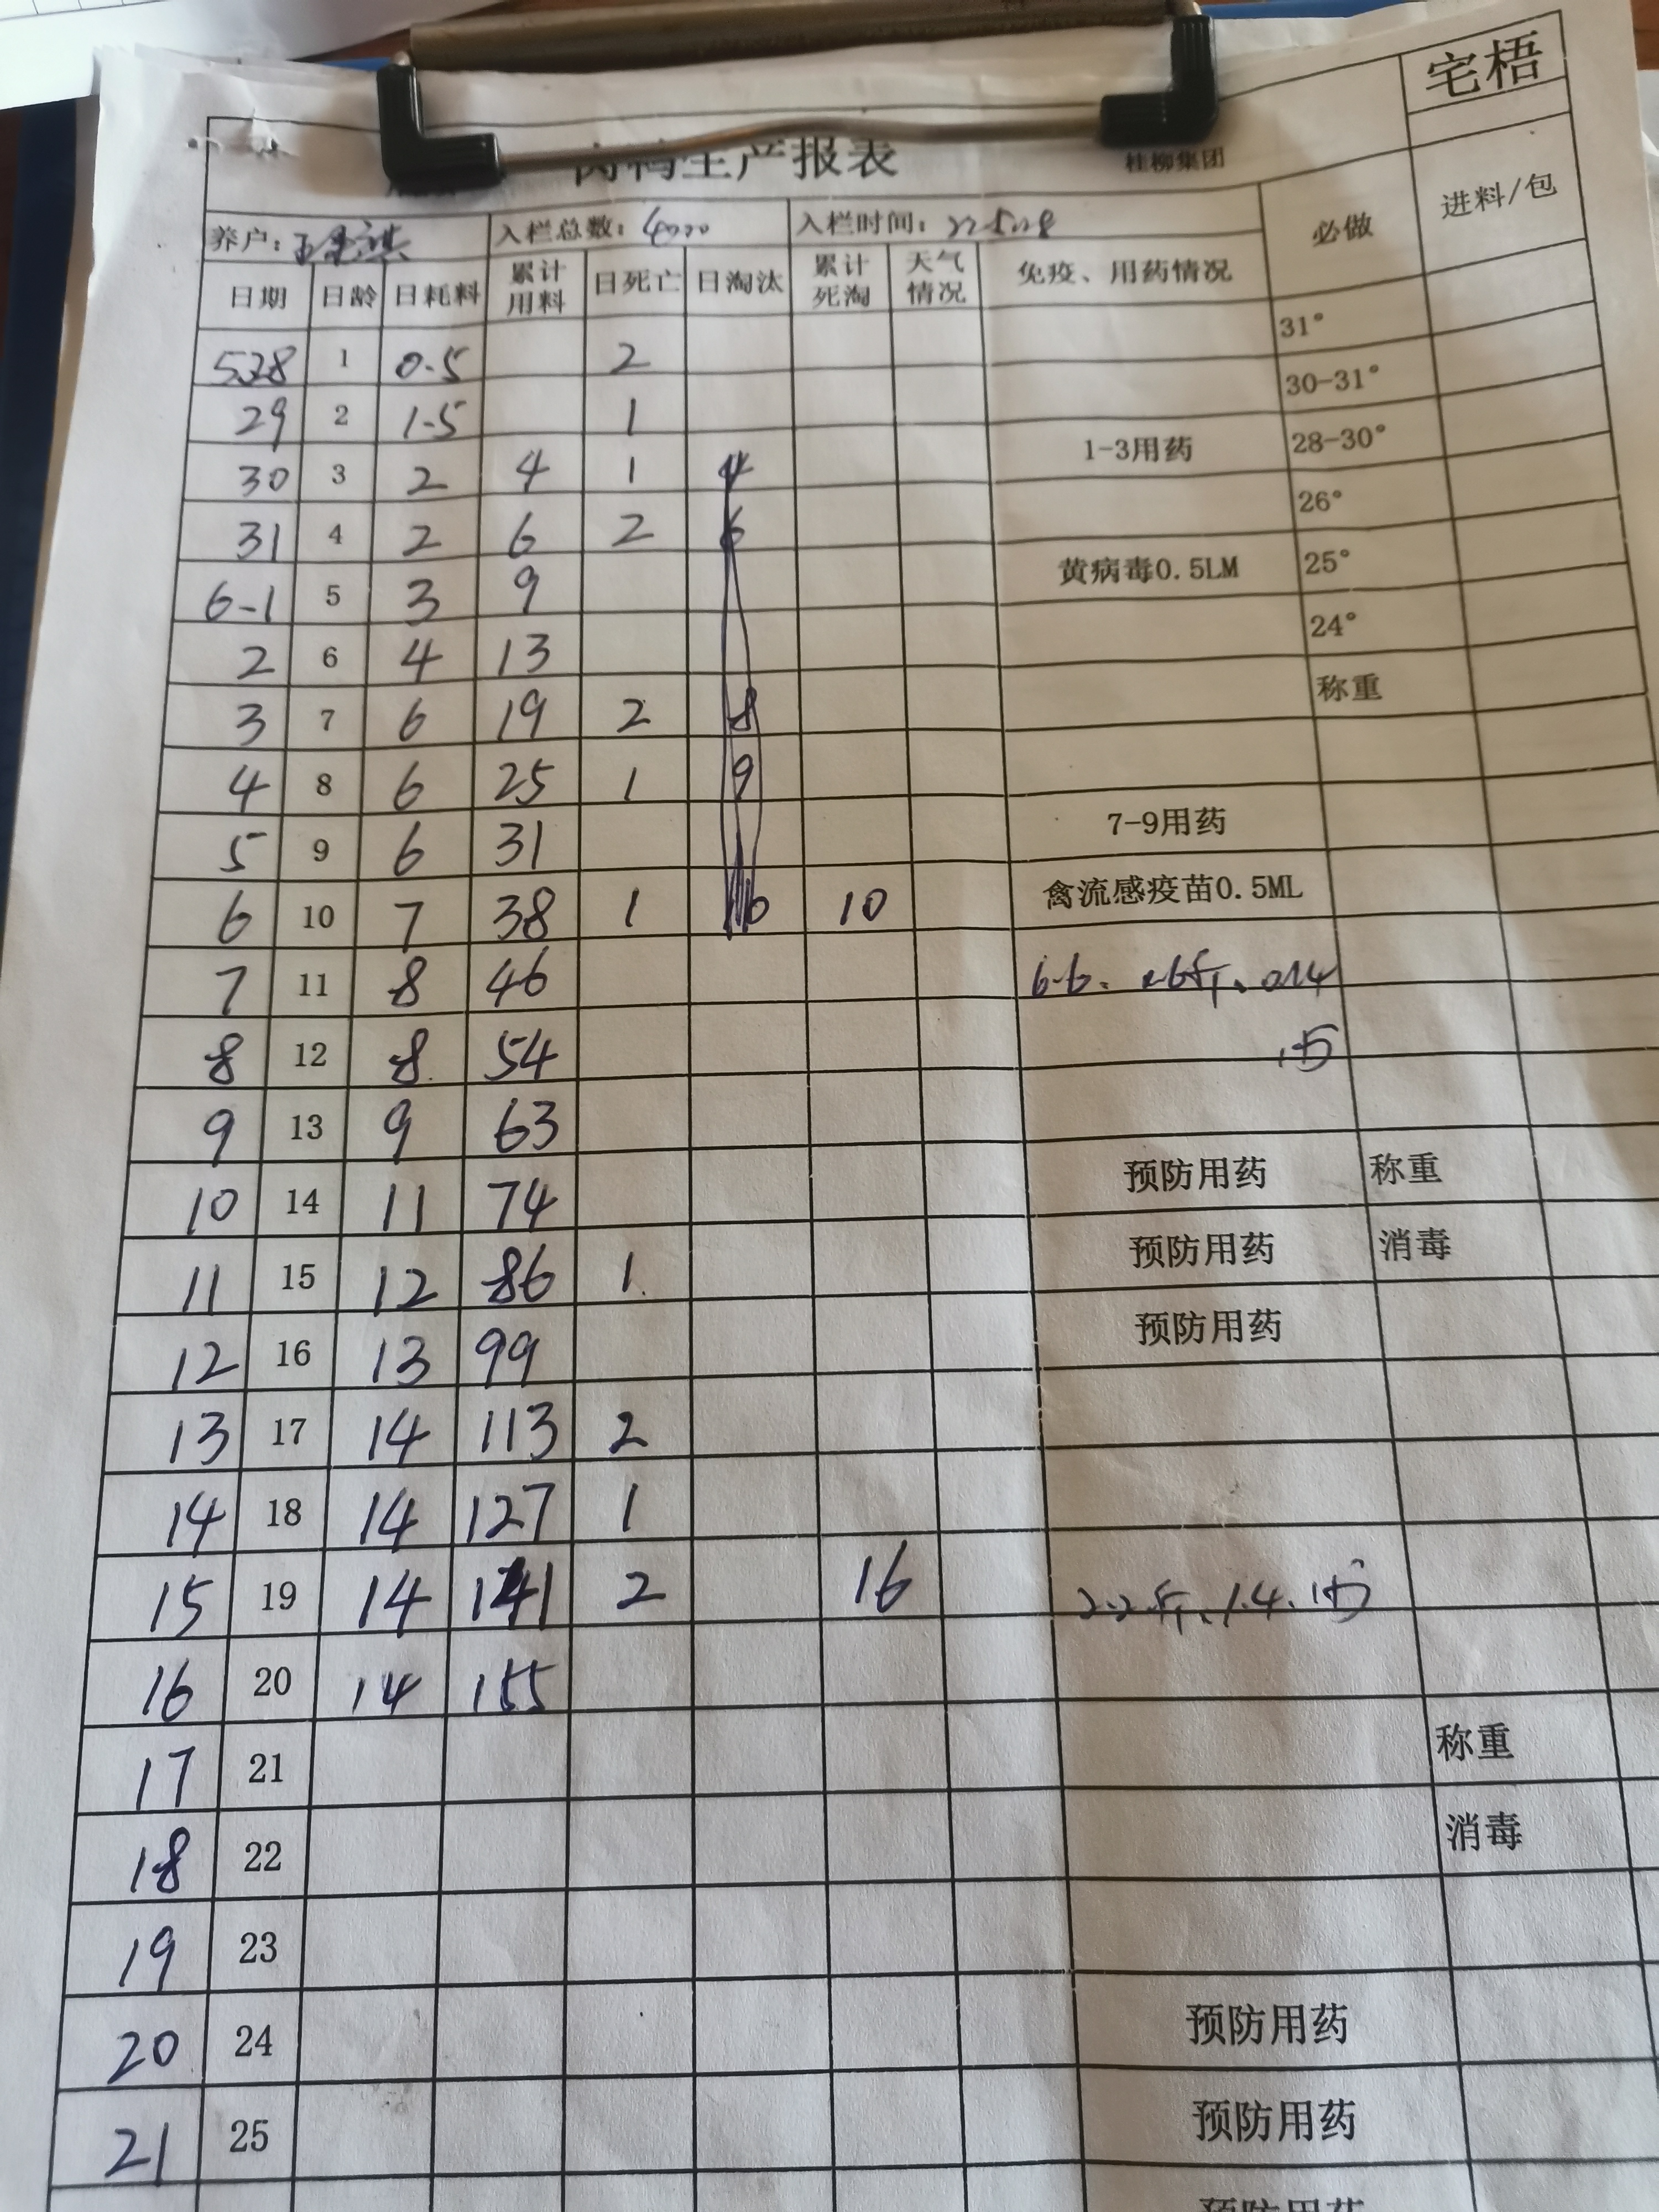 宅梧
生产报表 桂柳集团
养户: 入栏总数: 4000 入栏时间: 必做 进料/包
日期 日龄 日耗料 累计用料 日死亡 日淘汰 累计死淘 天气情况 免疫、用药情况
31°
528 1 0.5 2 30-31°
29 2 1.5 1 1-3用药 28-30°
30 3 2 4 1 4 26°
31 4 2 6 2 6 黄病毒0.5LM 25°
6-1 5 3 9 24°
2 6 4 13 称重
3 7 6 19 2 8
4 8 6 25 1 9 7-9用药
5 9 6 31 禽流感疫苗0.5ML
6 10 7 38 1 10 10
7 11 8 46 6-6.
8 12 8 54
9 13 9 63 预防用药 称重
10 14 11 74 预防用药 消毒
11 15 12 86 1 预防用药
12 16 13 99
13 17 14 113 2
14 18 14 127 1
15 19 14 141 2 16
16 20 14 155 称重
17 21 消毒
18 22
19 23 预防用药
20 24 预防用药
21 25 预防用药